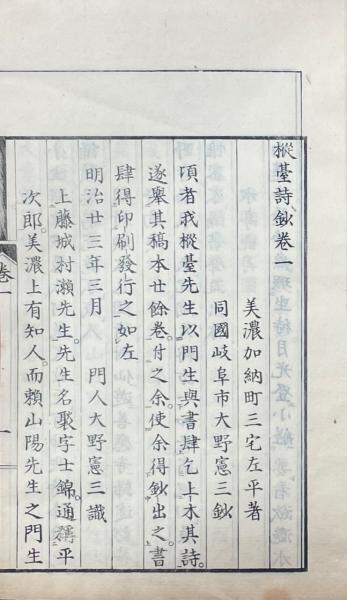 樅臺詩鈔卷一
美濃加納町三宅左平著
同國岐阜市大野憲三鈔
頃者我樅臺先生以門生與書肆乞上木其詩。
遂舉其稿本廿餘卷。付之余。使余得鈔出之。書
肆得印刷發行之如左
明治廿三年三月　門人大野憲三識
上藤城村瀬先生。先生名褧。字士錦。通稱平
次郎。美濃上有知人。而賴山陽先生之門生
卷一